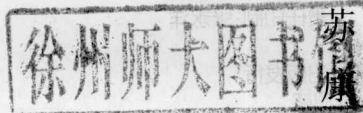 徐州师大图书馆
苏廉